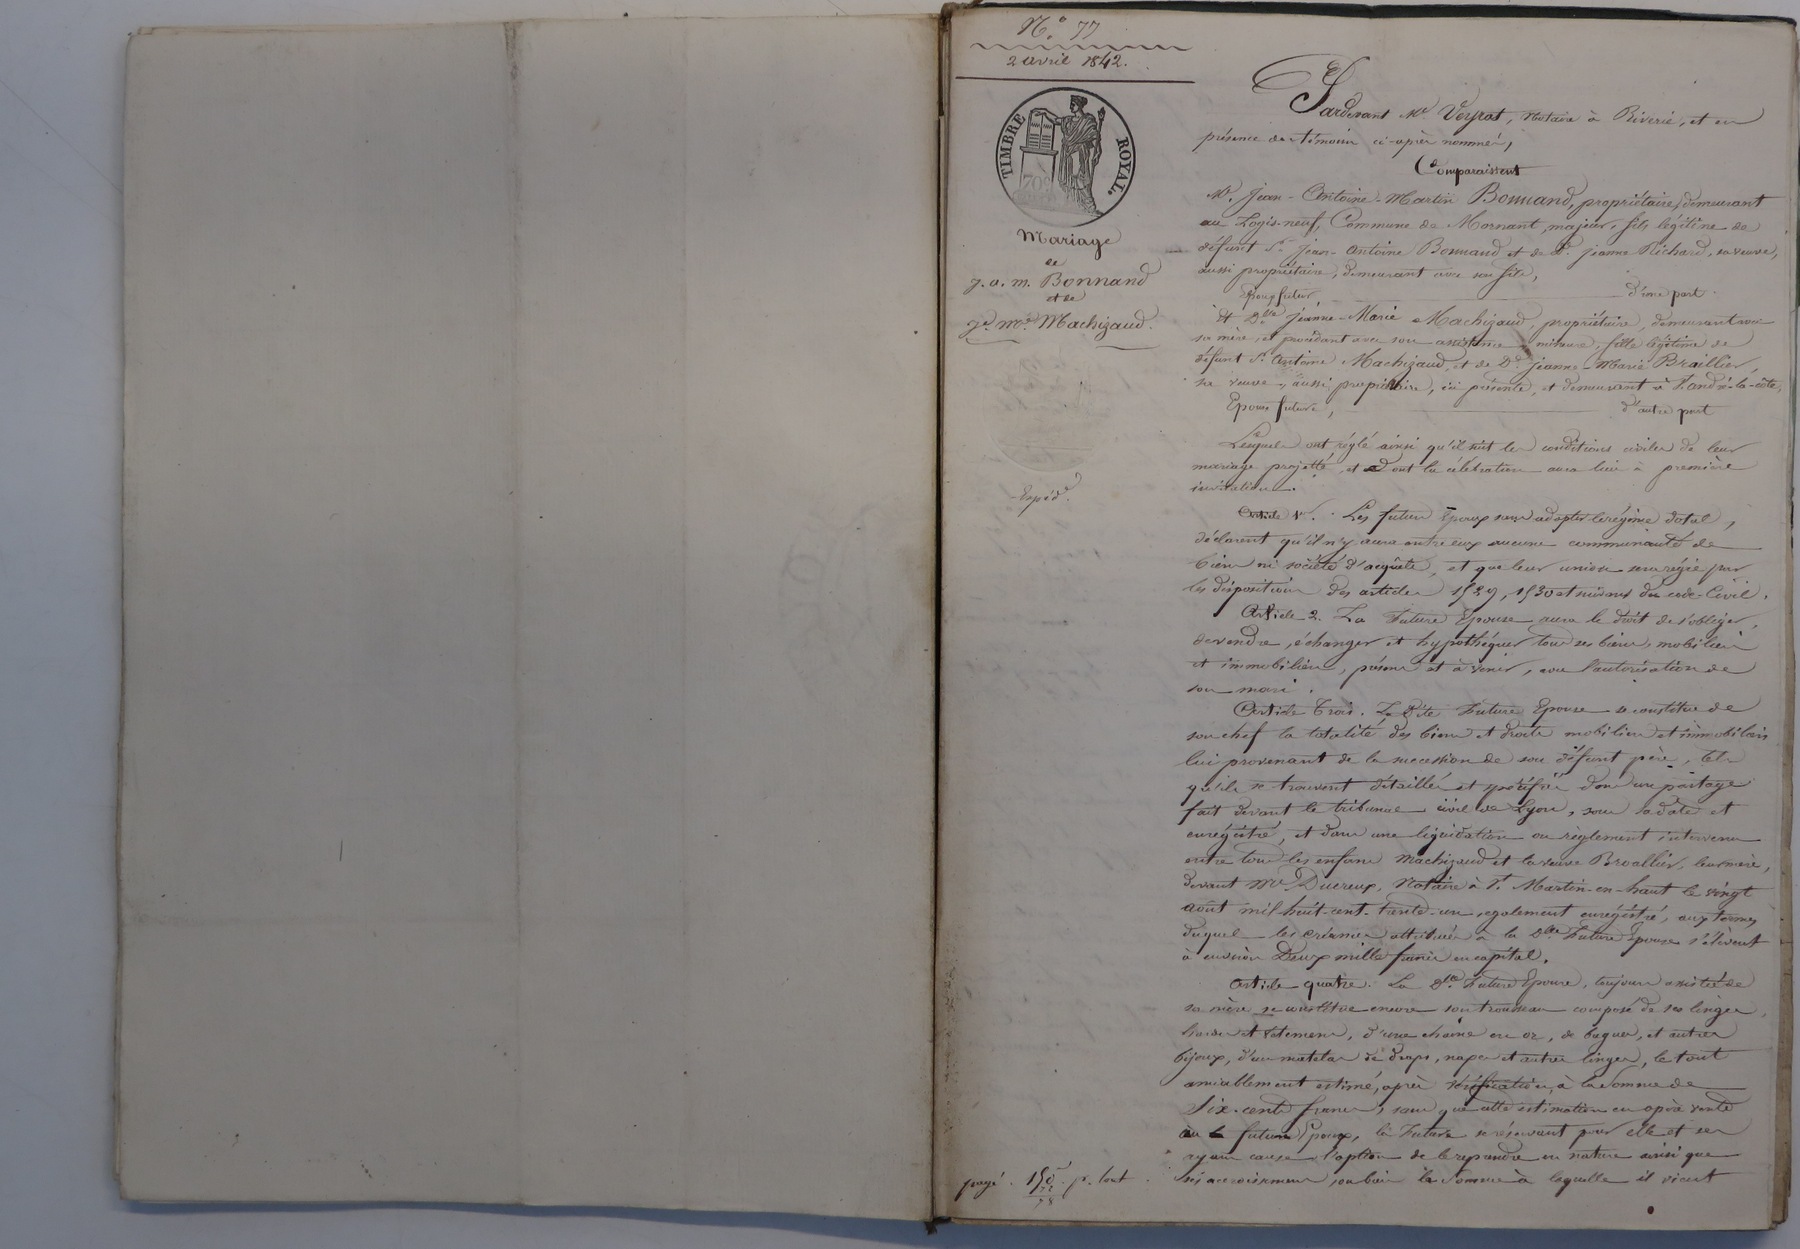 N.° 77
2 avril 1842.
TIMBRE ROYAL.
70c
Mariage
de
J. a. m. Bonnand
et de
Je. mie. Machizaud.
Expéd.
payé . p. tout
Pardevant Me Veyrat, Notaire à Riverie, et en
présence des témoins ci-après nommés,
Comparaissent
Mr. Jean-Antoine-Martin Bonnand, propriétaire, demeurant
au Logis-neuf, Commune de Mornant, majeur, fils légitime de
défunt Sr. Jean-Antoine Bonnand et de De. Jeanne Richard, sa veuve,
aussi propriétaire, demeurant avec son fils,
Epoux futur d'une part.
Et Dlle Jeanne-Marie Machizaud, propriétaire, demeurant avec
sa mère, et procédant avec son assistance mineure, fille légitime de
défunt Sr. Antoine Machizaud, et de De Jeanne-Marie Braillier,
sa veuve, aussi propriétaire, ici présente, et demeurant à St. andré-la-côte,
Epouse future, d'autre part
Lesquels ont réglé ainsi qu'il suit les conditions civiles de leur
mariage projetté, et dont la célébration aura lieu à première
invitation.
Article 1er. Les futurs Epoux sans adopter le régime dotal,
déclarent qu'il n'y aura entre eux aucune communauté de
biens ni société d'acquêts, et que leur union sera régie par
les dispositions des articles 1529, 1530 et suivants du code-Civil.
Article 2. La Future Epouse aura le droit de s'obliger,
de vendre, échanger et hypothéquer tous ses biens, mobiliers
et immobiliers, présens et à venir, avec l'autorisation de
son mari.
Article Trois. La Dite Future Epouse se constitue de
son chef la totalité des biens et droits mobiliers et immobiliers
lui provenant de la succession de son défunt père, tels
qu'ils se trouvent détaillés et spécifiés dans un partage
fait devant le tribunal civil de Lyon, sous sa date et
enrégistré, et dans une liquidation ou règlement intervenu
entre tous les enfans Machizaud et la veuve Broallier, leur mère,
devant Me Ducreux, Notaire à St. Martin-en-haut le vingt
août mil huit-cent-trente-un, egalement enrégistré, aux termes
duquel les créances attribuées à la Dlle Future Epouse s'élèvent
à environ Deux mille francs en capital.
Article quatre. La Dle. Future Epouse, toujours assistée de
sa mère se constitue encore son trousseau composé de ses linges,
hardes et vêtemens, d'une chaîne en or, de bagues, et autres
bijoux, d'un matelas de draps, napes et autres linges, le tout
amiablement estimé, après vérification, à la Somme de
Six-cents francs, sans que cette estimation en opère vente
au futur Epoux, la Future se réservant pour elle et ses
ayans cause l'option de le reprendre en nature ainsi que
ses accroissemens, ou bien la Somme à laquelle il vient